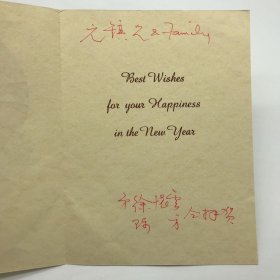 元镇兄 & Family
Best Wishes
for your Happiness
in the New Year
弟徐
方 仝拜贺